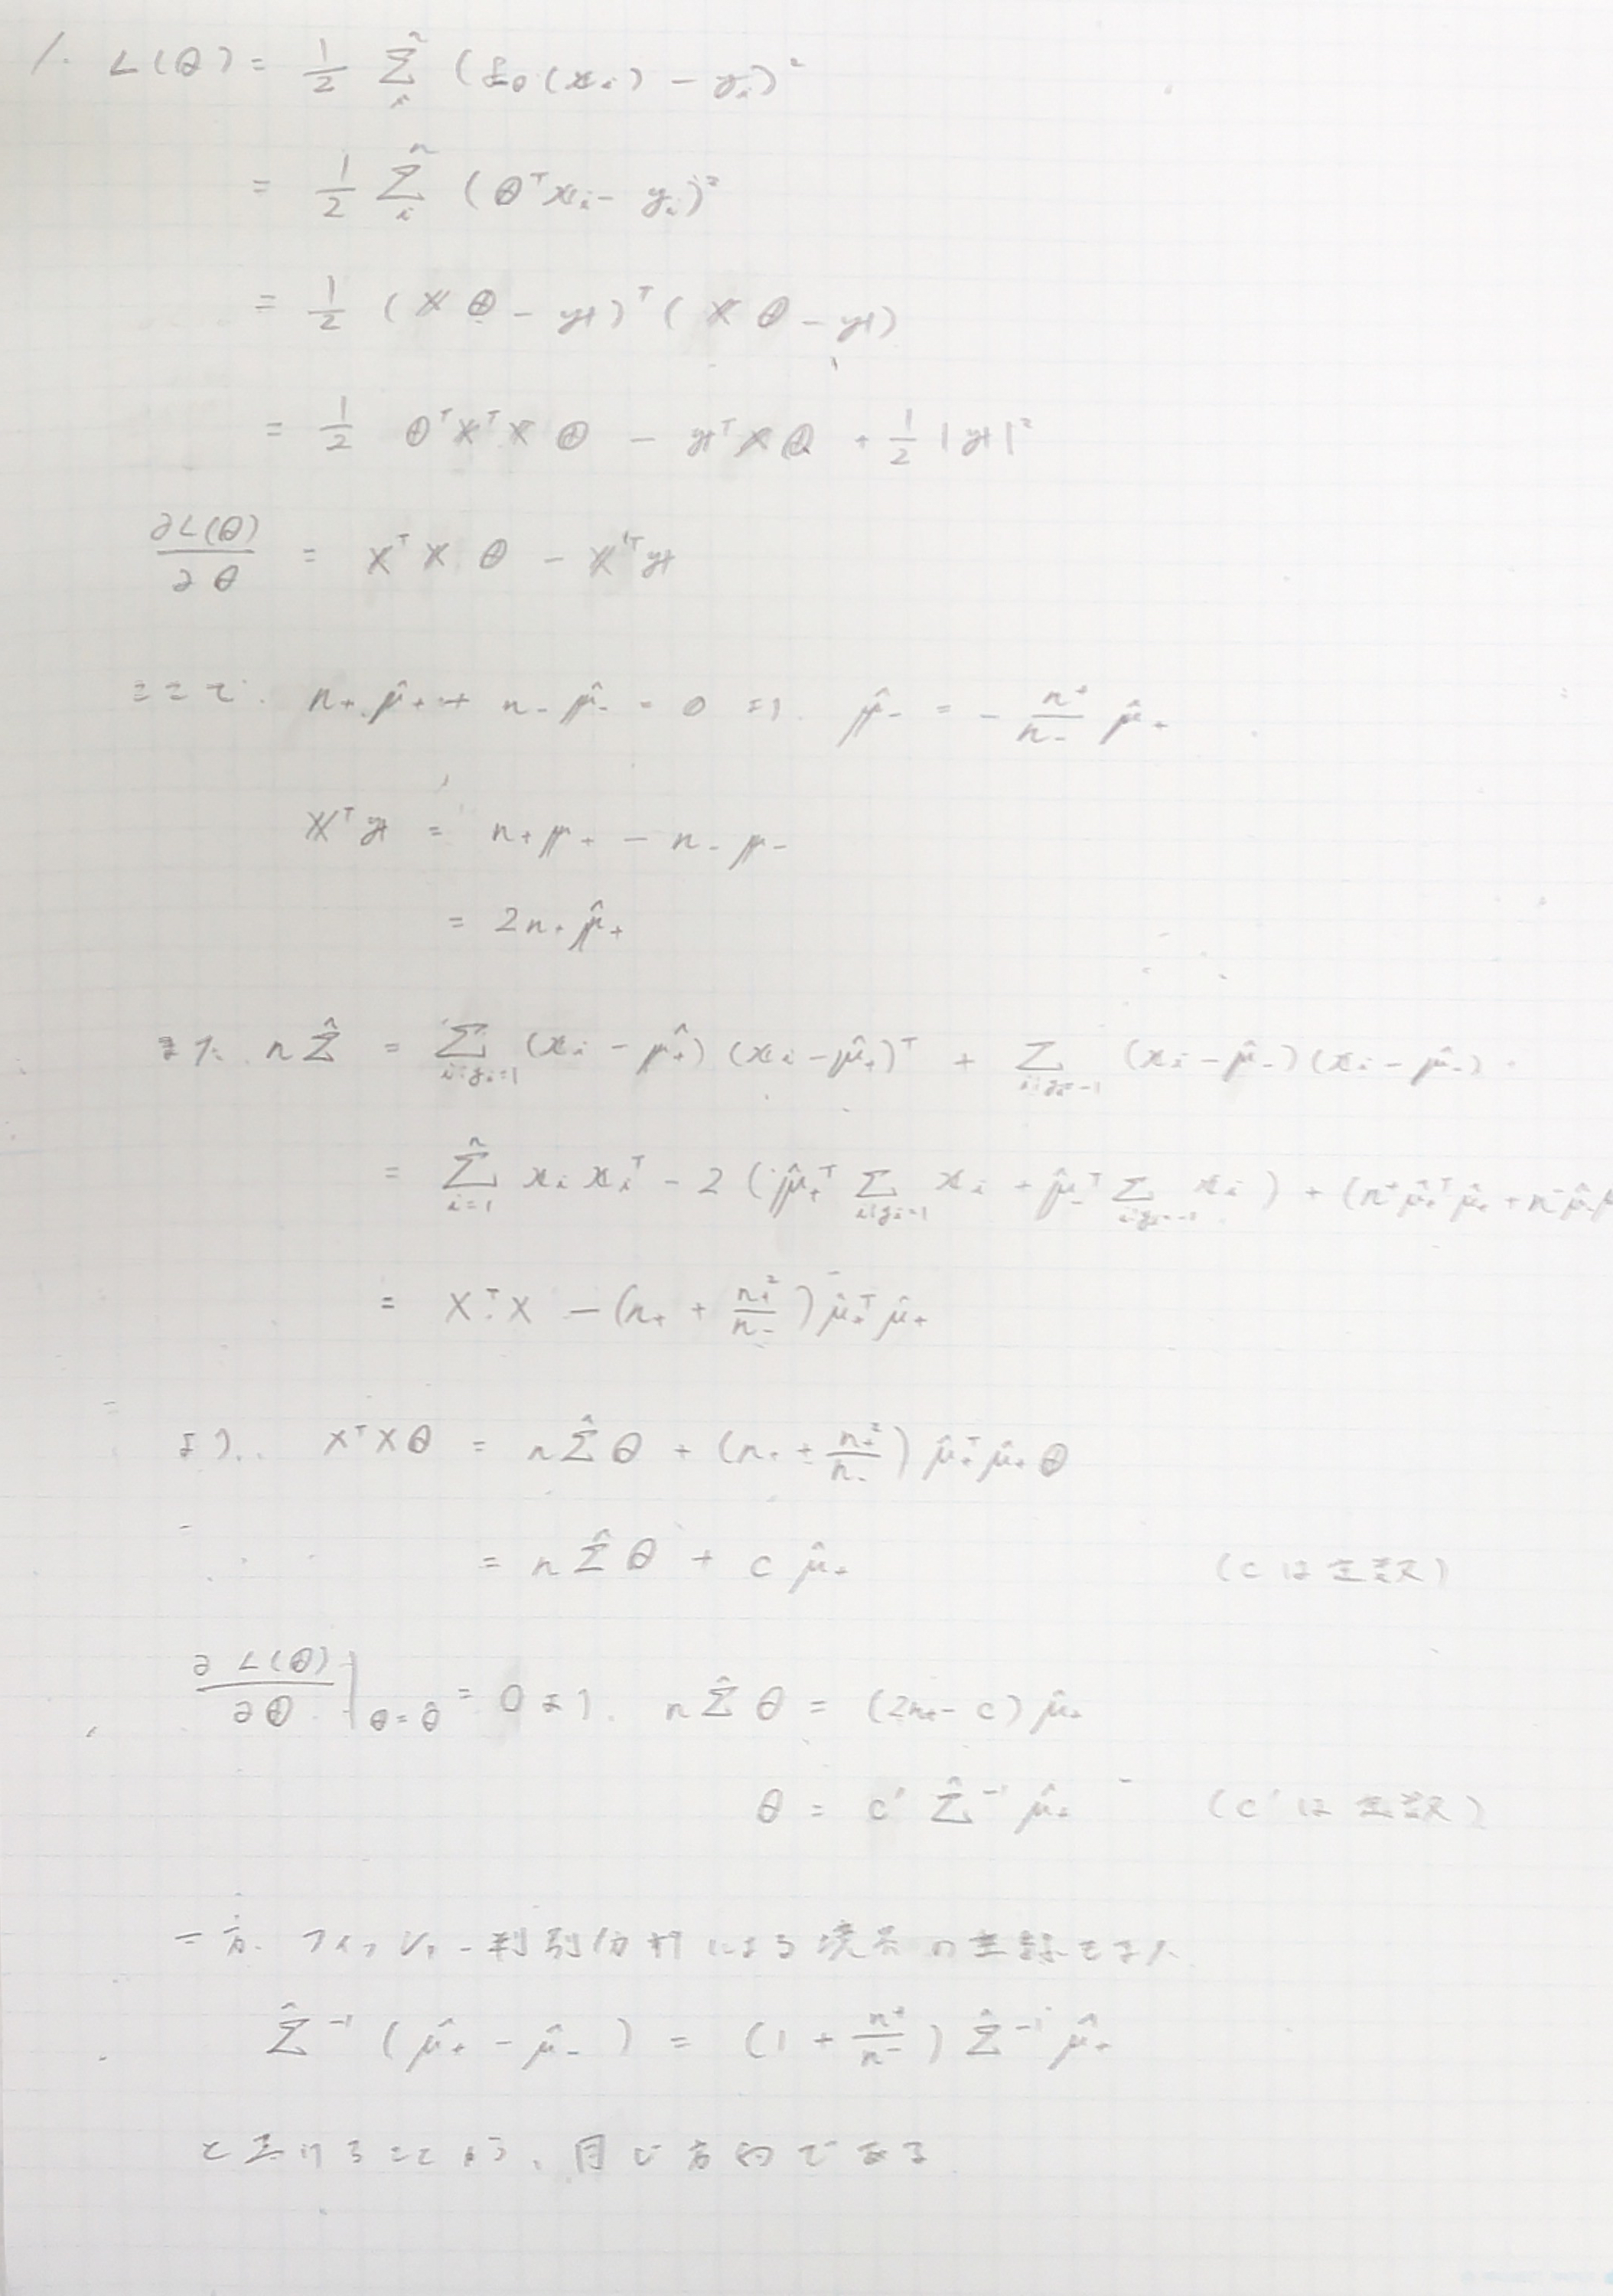 1. L(θ) = 1/2 Σ_i^n (f_θ(x_i) − y_i)²
= 1/2 Σ_i^n (θ^T x_i − y_i)²
= 1/2 (Xθ − y)^T (Xθ − y)
= 1/2 θ^T X^T X θ − y^T X θ + 1/2 |y|²
∂L(θ)/∂θ = X^T X θ − X^T y
ここで. n₊ μ̂₊ + n₋ μ̂₋ = 0 より. μ̂₋ = − n⁺/n₋ μ̂₊
X^T y = n₊ μ₊ − n₋ μ₋
= 2n₊ μ̂₊
また. n Σ̂ = Σ_{i:y_i=1} (x_i − μ̂₊)(x_i − μ̂₊)^T + Σ_{i:y_i=−1} (x_i − μ̂₋)(x_i − μ̂₋)
= Σ_{i=1}^n x_i x_i^T − 2 (μ̂₊^T Σ_{i:y_i=1} x_i + μ̂₋^T Σ_{i:y_i=−1} x_i) + (n⁺ μ̂₊^T μ̂₊ + n⁻ μ̂₋
= X^T X − (n₊ + n₊²/n₋) μ̂₊^T μ̂₊
より. X^T X θ = n Σ̂ θ + (n₊ + n₊²/n₋) μ̂₊^T μ̂₊ θ
= n Σ̂ θ + c μ̂₊ (cは定数)
∂L(θ)/∂θ |_{θ=θ̂} = 0 より. n Σ̂ θ = (2n₊ − c) μ̂₊
θ = c′ Σ̂⁻¹ μ̂₊ (c′は定数)
一方. フィッシャー判別分析による境界の法線もまた
Σ̂⁻¹ (μ̂₊ − μ̂₋) = (1 + n⁺/n⁻) Σ̂⁻¹ μ̂₊
と書けることから、同じ方向である